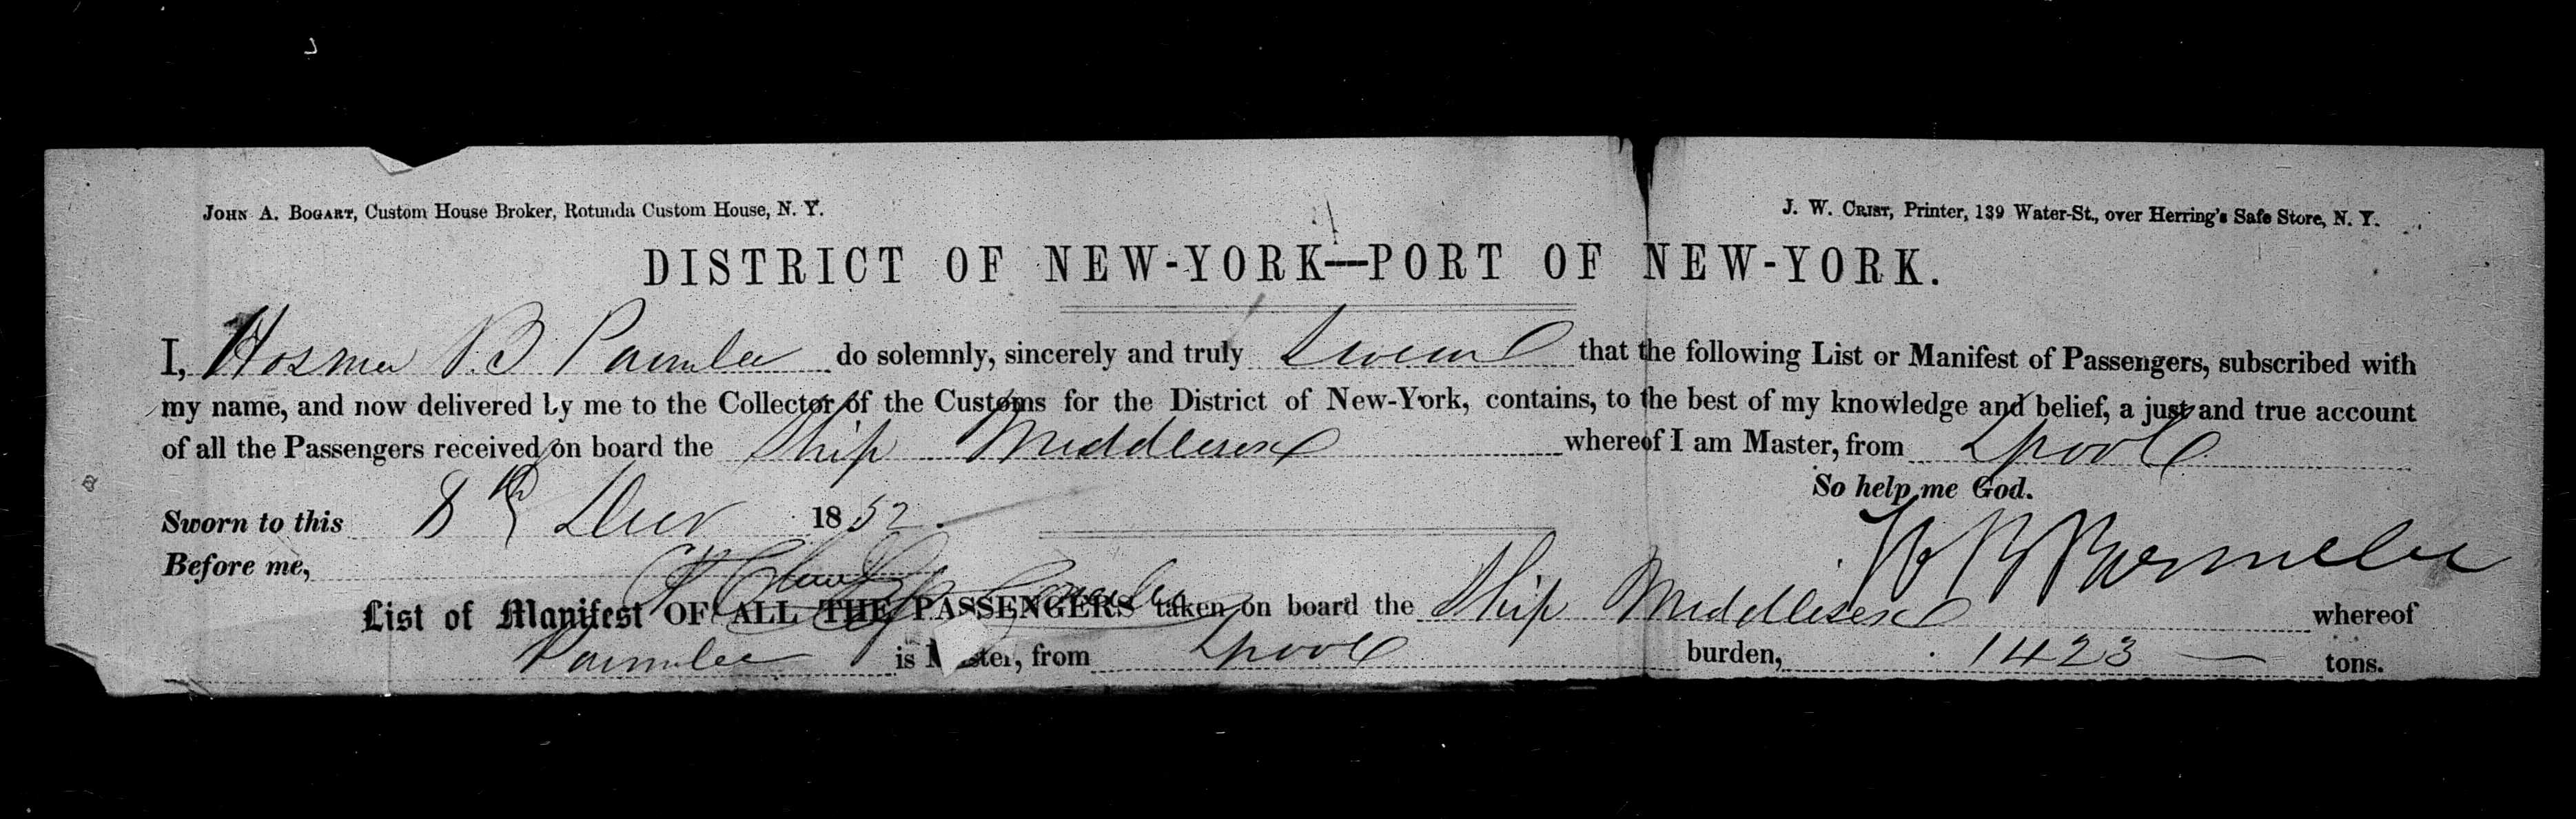 JOHN A. BOGART, Custom House Broker, Rotunda Custom House, N. Y.
J. W. CRIST, Printer, 139 Water-St., over Herring's Safe Store, N. Y.
DISTRICT OF NEW-YORK—PORT OF NEW-YORK.
I, Hosmer B Parmlee do solemnly, sincerely and truly swear that the following List or Manifest of Passengers, subscribed with
my name, and now delivered by me to the Collector of the Customs for the District of New-York, contains, to the best of my knowledge and belief, a just and true account
of all the Passengers received on board the Ship Middlesex whereof I am Master, from Lpool
So help me God.
Sworn to this 8th 1852.
Before me,
H B Parmelee
List of Manifest OF ALL THE PASSENGERS taken on board the Ship Middlesex whereof
Parmlee is Master, from Lpool burden, 1423 tons.